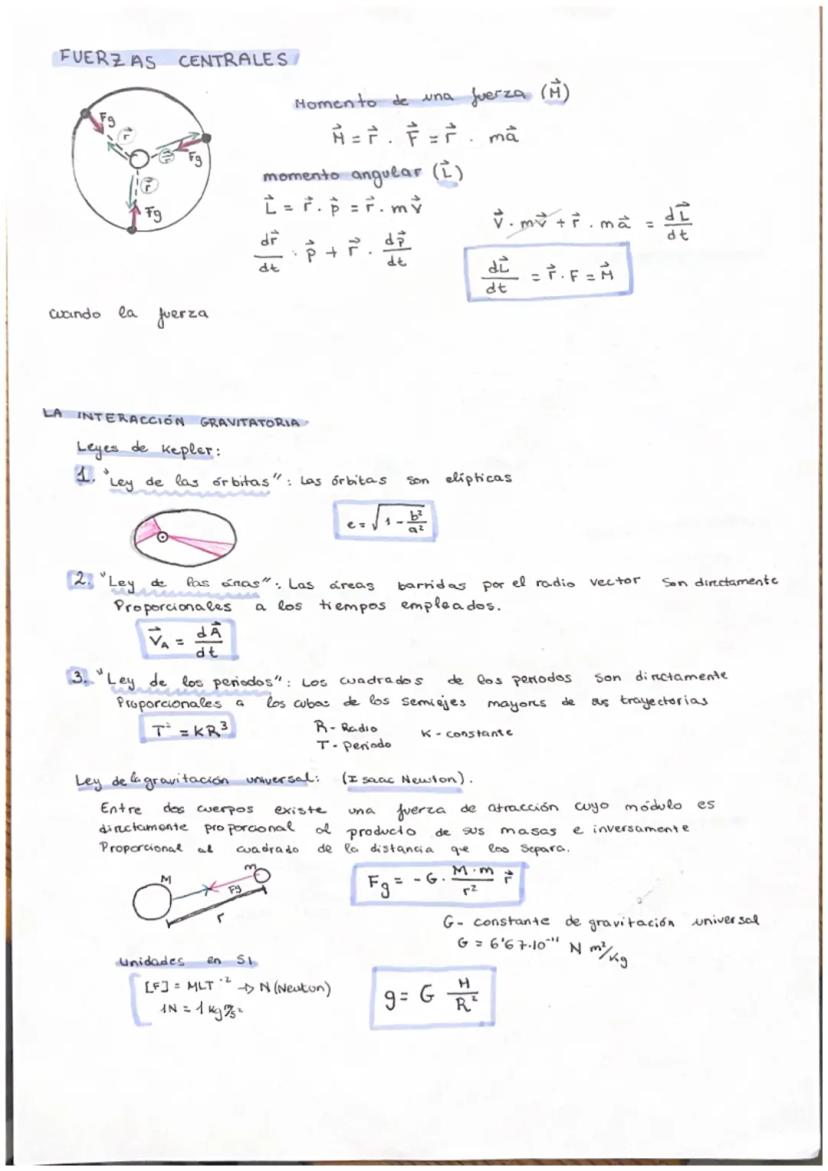 FUERZAS CENTRALES
Fg
r⃗
r⃗
Fg
r⃗
Fg
Momento de una fuerza (M⃗)
M⃗ = r⃗ . F⃗ = r⃗ . ma⃗
momento angular (L⃗)
L⃗ = r⃗ . p⃗ = r⃗ . mv⃗
dr⃗/dt . p⃗ + r⃗ . dp⃗/dt
v⃗ . mv⃗ + r⃗ . ma⃗ = dL⃗/dt
dL⃗/dt = r⃗ . F = M⃗
cuando la fuerza
LA INTERACCIÓN GRAVITATORIA
Leyes de Kepler:
1. "Ley de las órbitas": Las órbitas son elípticas
e = √(1 - b²/a²)
2. "Ley de las áreas": Las áreas barridas por el radio vector son directamente
Proporcionales a los tiempos empleados.
V⃗A = dA⃗/dt
3. "Ley de los periodos": Los cuadrados de los periodos son directamente
Proporcionales a los cubos de los semiejes mayores de sus trayectorias
T² = KR³
R - Radio
T - Periodo
K - constante
Ley de la gravitación universal: (Isaac Newton).
Entre dos cuerpos existe una fuerza de atracción cuyo módulo es
directamente proporcional al producto de sus masas e inversamente
Proporcional al cuadrado de la distancia que los separa.
M
m
Fg
r
Fg = -G. M·m/r² r⃗
G - constante de gravitación universal
G = 6'67·10⁻¹¹ N m²/Kg
Unidades en SI
[F] = MLT⁻² → N (Neuton)
1N = 1 Kg m/s²
g = G M/R²